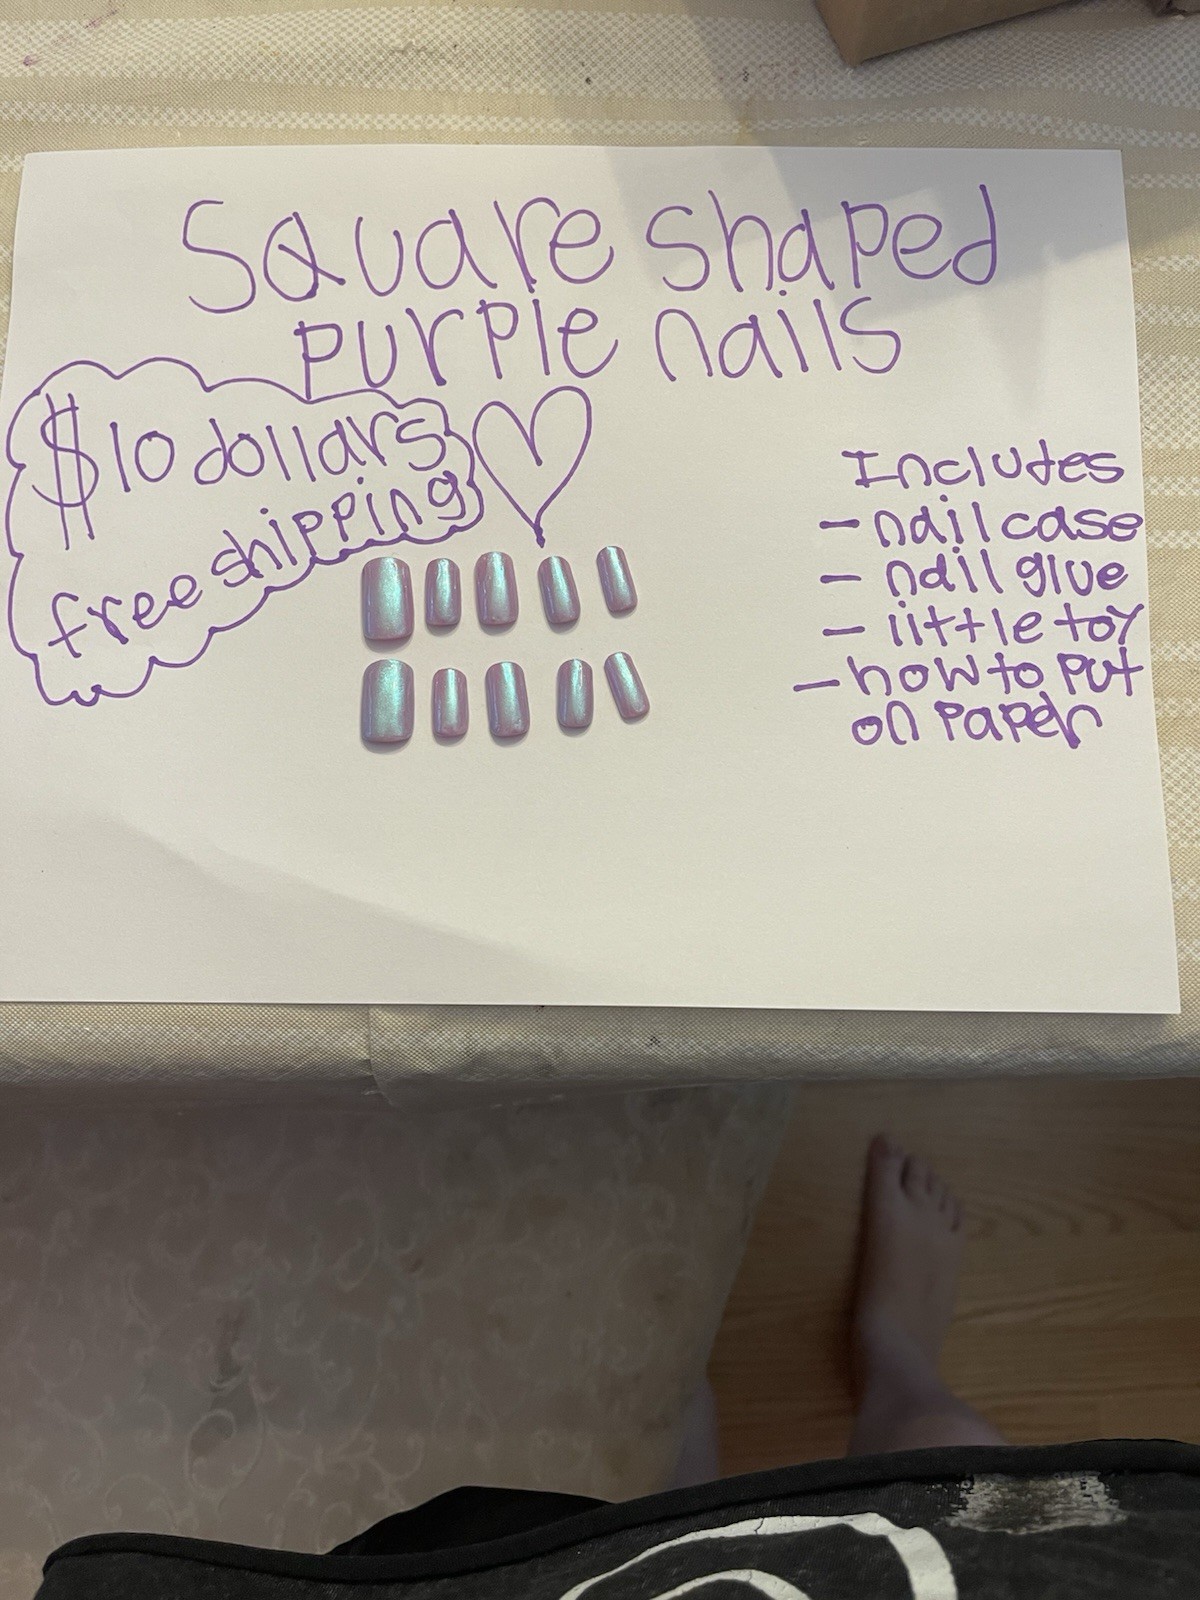 Square shaped
purple nails
$10 dollars
free shipping
Includes
- nail case
- nail glue
- little toy
- how to put
on paper